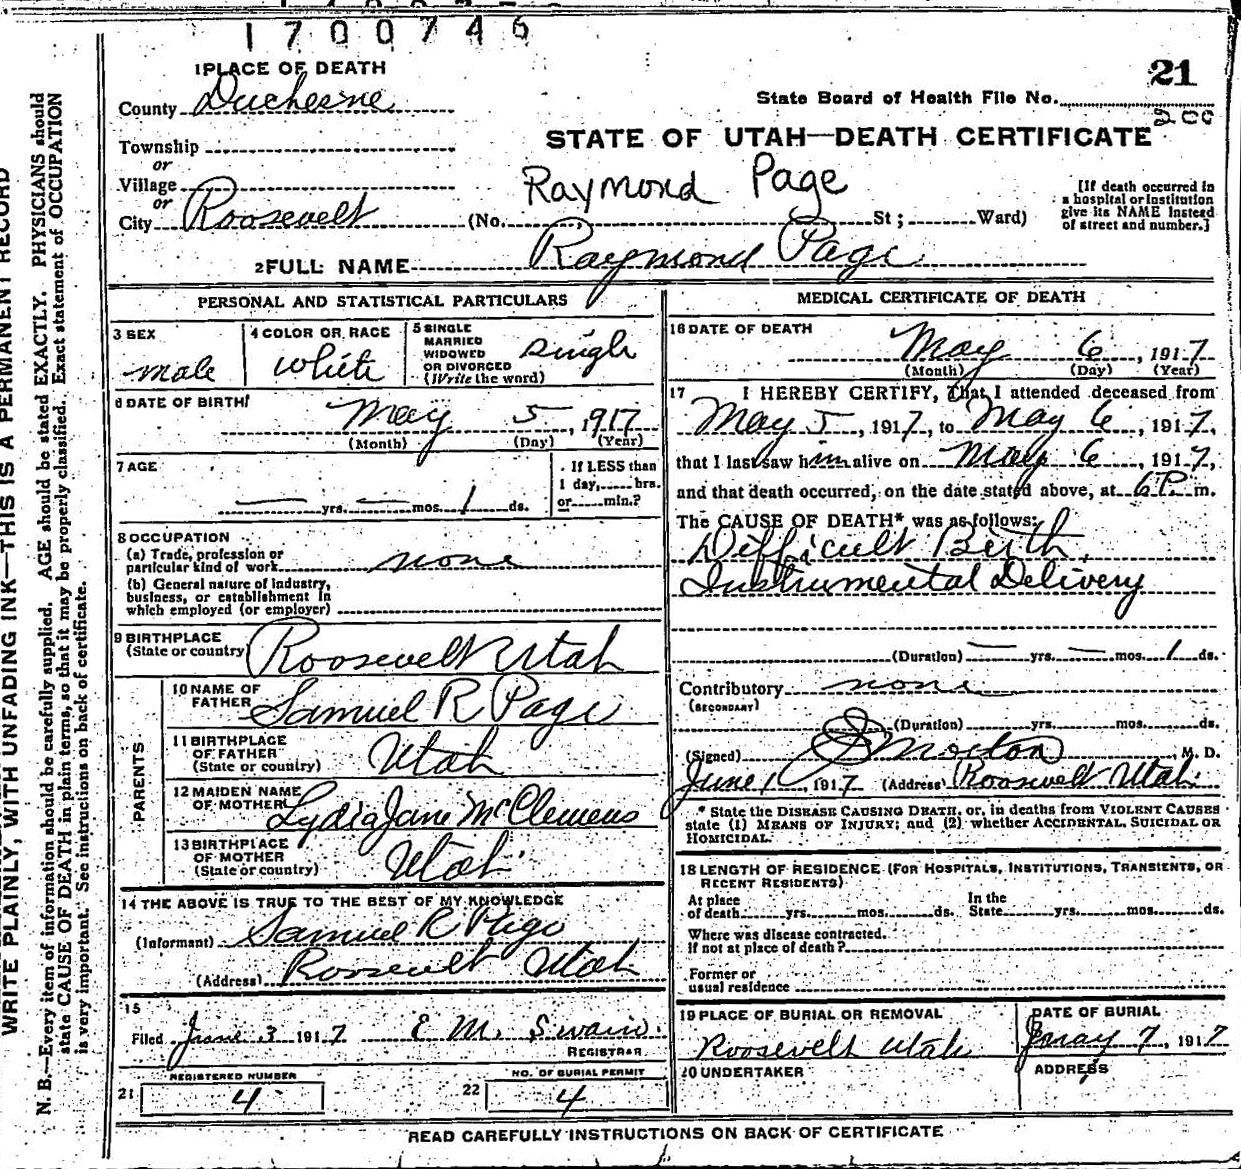 1700746
1 PLACE OF DEATH
21
County Duchesne
State Board of Health File No.
Township
STATE OF UTAH—DEATH CERTIFICATE
or
Village
Raymond Page
[If death occurred in
a hospital or institution
give its NAME instead
of street and number.]
or
City Roosevelt (No. St; Ward)
2 FULL NAME Raymond Page
PERSONAL AND STATISTICAL PARTICULARS
3 SEX
male
4 COLOR OR RACE
White
5 SINGLE
MARRIED
WIDOWED
OR DIVORCED
(Write the word)
single
6 DATE OF BIRTH
May 5, 1917
(Month) (Day) (Year)
7 AGE
— yrs. — mos. 1 ds.
If LESS than
1 day, hrs.
or min.?
8 OCCUPATION
(a) Trade, profession or
particular kind of work none
(b) General nature of industry,
business, or establishment in
which employed (or employer)
9 BIRTHPLACE
(State or country) Roosevelt Utah
PARENTS
10 NAME OF
FATHER Samuel R Page
11 BIRTHPLACE
OF FATHER
(State or country) Utah
12 MAIDEN NAME
OF MOTHER Lydia Jane McClemens
13 BIRTHPLACE
OF MOTHER
(State or country) Utah
14 THE ABOVE IS TRUE TO THE BEST OF MY KNOWLEDGE
(Informant) Samuel R Page
(Address) Roosevelt Utah
15
Filed June 3 1917 E M. Swain.
REGISTRAR
REGISTERED NUMBER
21 4
NO. OF BURIAL PERMIT
22 4
MEDICAL CERTIFICATE OF DEATH
16 DATE OF DEATH
May 6, 1917
(Month) (Day) (Year)
17 I HEREBY CERTIFY, That I attended deceased from
May 5, 1917, to May 6, 1917,
that I last saw him alive on May 6, 1917,
and that death occurred, on the date stated above, at 6 P. m.
The CAUSE OF DEATH* was as follows:
Difficult Birth,
Instrumental Delivery
(Duration) — yrs. — mos. 1 ds.
Contributory none
(SECONDARY)
(Duration) yrs. mos. ds.
(Signed) Morton, M. D.
June 1, 1917 (Address) Roosevelt Utah.
* State the DISEASE CAUSING DEATH, or, in deaths from VIOLENT CAUSES
state (1) MEANS OF INJURY; and (2) whether ACCIDENTAL, SUICIDAL OR
HOMICIDAL.
18 LENGTH OF RESIDENCE (FOR HOSPITALS, INSTITUTIONS, TRANSIENTS, OR
RECENT RESIDENTS)
At place
of death yrs. mos. ds.
In the
State yrs. mos. ds.
Where was disease contracted.
If not at place of death?
Former or
usual residence
19 PLACE OF BURIAL OR REMOVAL
Roosevelt Utah
DATE OF BURIAL
May 7, 1917
20 UNDERTAKER
ADDRESS
READ CAREFULLY INSTRUCTIONS ON BACK OF CERTIFICATE
WRITE PLAINLY, WITH UNFADING INK—THIS IS A PERMANENT RECORD
N. B.—Every item of information should be carefully supplied. AGE should be stated EXACTLY. PHYSICIANS should
state CAUSE OF DEATH in plain terms, so that it may be properly classified. Exact statement of OCCUPATION
is very important. See instructions on back of certificate.